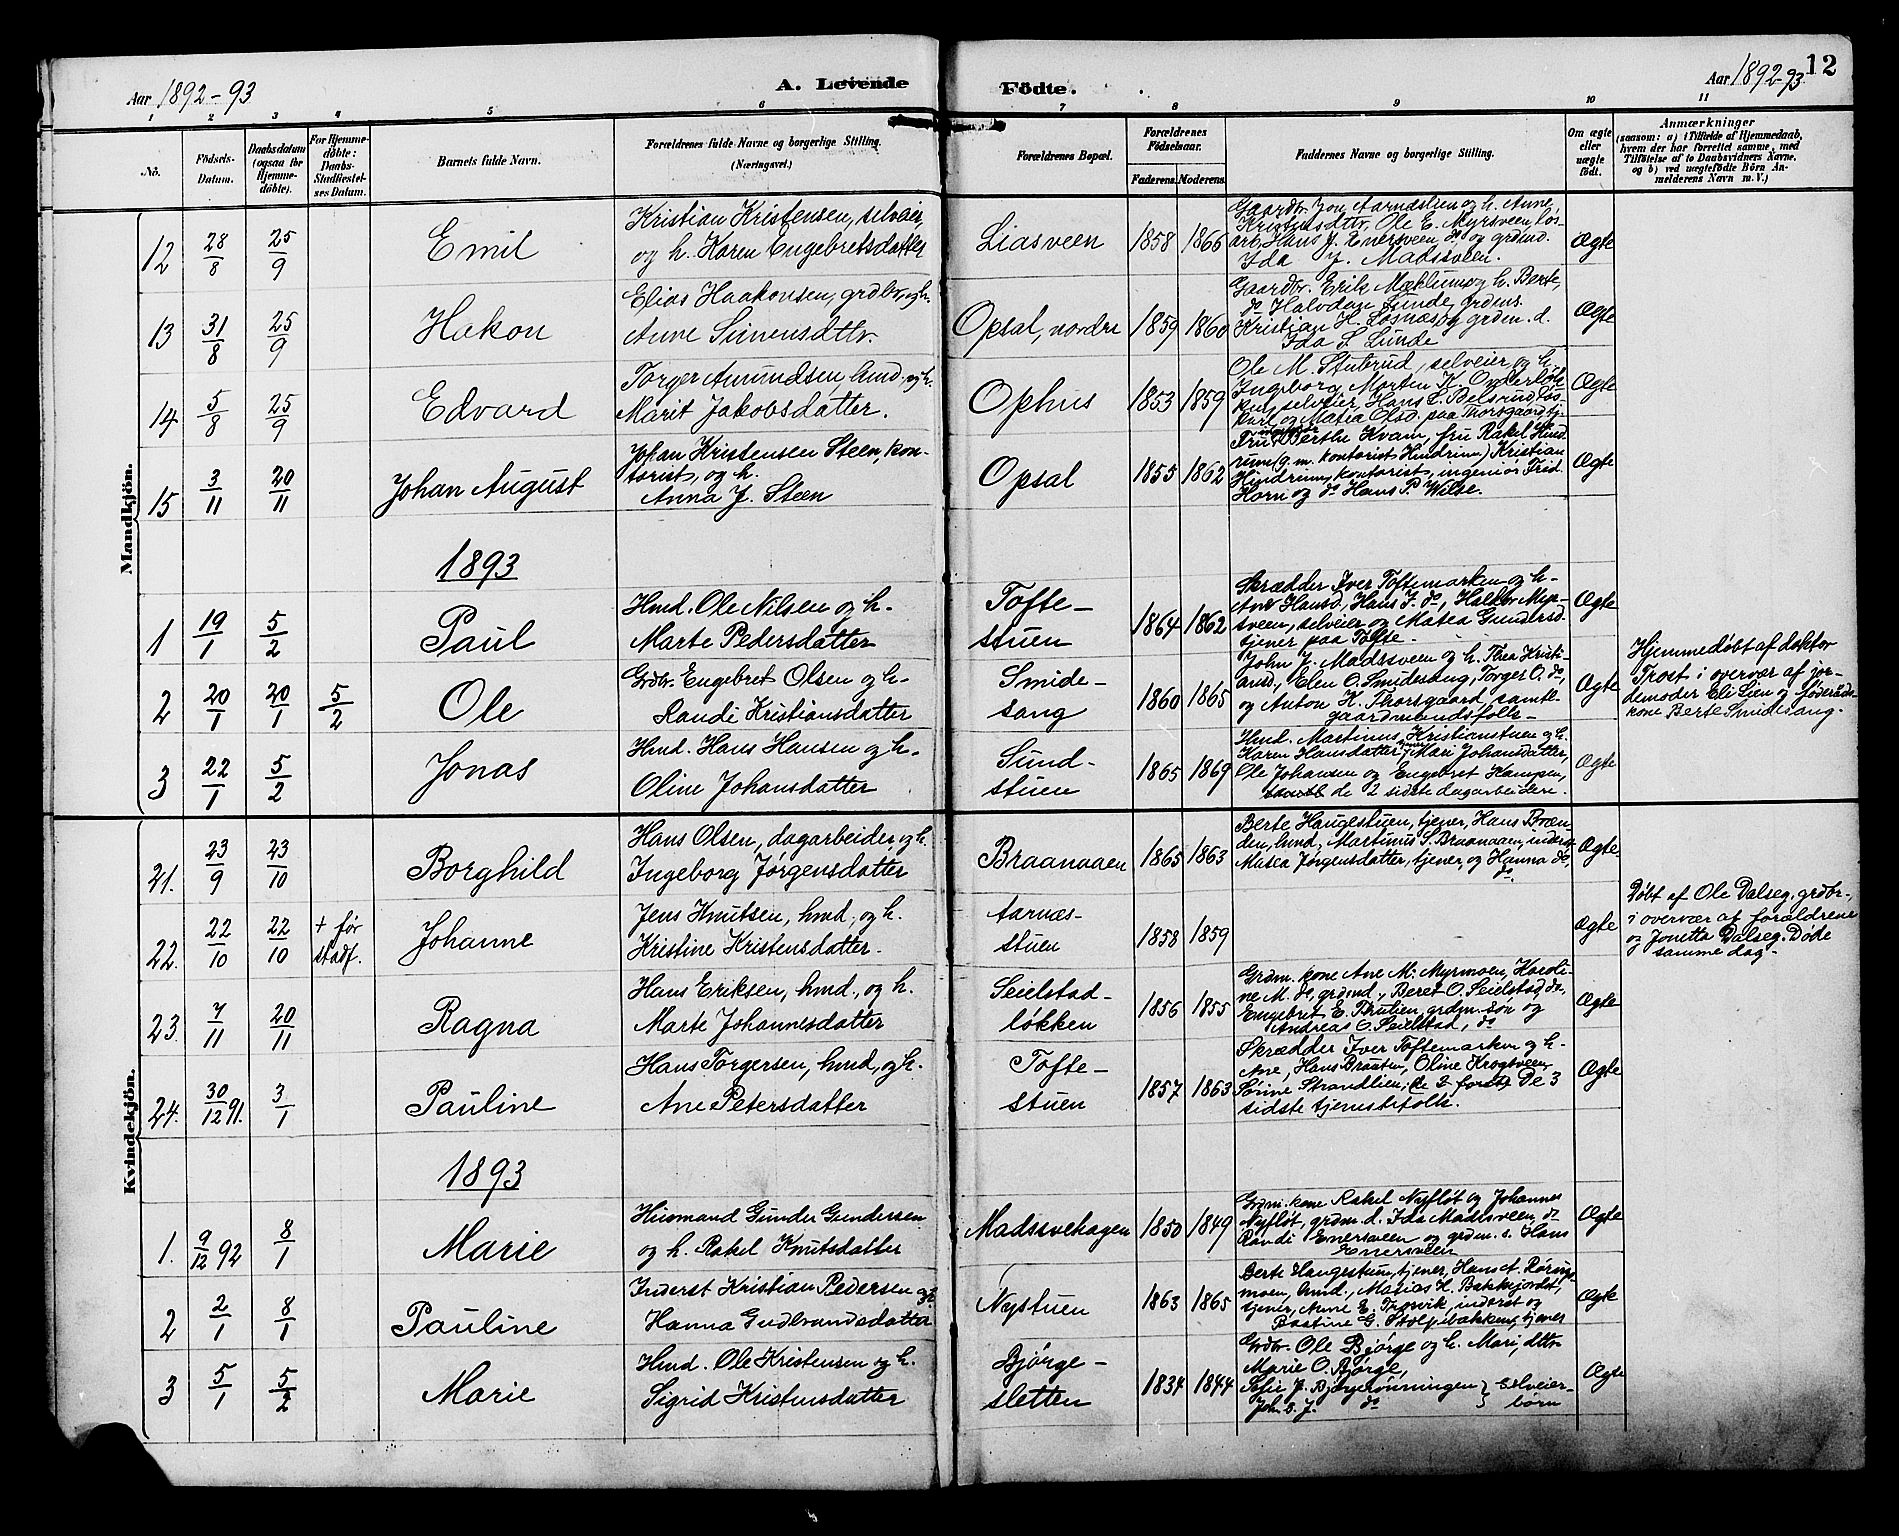 Aar 1892-93
A. Levende
Fødte.
Aar 1892-93.
12
1 2 3 4 5 6 7 8 9 10 11
No.
Fødsels-
Datum.
Daabsdatum
(ogsaa for
Hjemme-
døbte).
For Hjemme-
døbte:
Daabs-
Stadfæstel-
ses Datum.
Barnets fulde Navn.
Forældrenes fulde Navne og borgerlige Stilling.
(Næringsvei.)
Forældrenes Bopæl.
Forældrenes
Fødselsaar.
Faderens. Moderens.
Faddernes Navne og borgerlige Stilling.
Om ægte
eller
uægte
født.
Anmærkninger
(saasom: a) i Tilfælde af Hjemmedaab,
hvem der har forrettet samme, med
Tilføielse af to Daabsvidners Navne,
og b) ved uægtefødte Børn An-
melderens Navn m.V.)
Mandkjön.
12 28/8 25/9 Emil
Kristian Kristensen, selveier,
og h. Karen Engebretsdatter
Liasveen 1858 1866
Gaardbr. Jon Aarnæslien og h. Anne
Kristensdttr, Ole E. Myrsveen, løs-
arb, Hans J. Enersveen do og grdmd.
Ida J. Madssveen.
Ægte
13 31/8 25/9 Hakon
Elias Haakonsen, grdbr, og h.
Anne Simensdttr.
Opsal, nordre 1859 1860
Gaardbr. Erik Mæhlum og h. Berte,
do Halvdan Lunde, grdens.
Kristian H. Losnæs og grdm. d.
Ida S. Lunde
Ægte
14 5/8 25/9 Edvard
Torger Amundsen hmd, og h.
Marit Jakobsdatter.
Ophus 1853 1859
Ole M. Stubrud, selveier, og h.
Ingeborg, Morten K.
selveier, Hans L.
karl og Matea Olsd. paa Thorsgaard tj.
Ægte
15 3/11 20/11 Johan August
Johan Kristensen Steen, kon-
torist, og h.
Anna J. Steen
Opsal 1855 1862
Fru Berthe Kvam, fru Rakel Hind-
rum (g. m. kontorist Hindrum) Kristian
Hindrum, kontorist, ingeniør Frid.
Horn og do Hans P. Wilse.
Ægte
1893
1 19/1 5/2 Paul
Hmd. Ole Nilsen og h.
Marte Pedersdatter
Tofte-
stuen 1864 1862
Skrædder Iver Toftemarken og h.
Ane Hansd, Hans I. do, Halvor Myr-
sveen, selveier og Matea Gundersd
tjener paa Tofte.
Ægte
2 20/1 20/1 5/2 Ole
Grdbr. Engebret Olsen og h.
Randi Kristiansdatter
Smide-
sang 1860 1865
John J. Madssveen og h. Thea Kristi-
ansd, Elen O. Smidesang, Torger O. do,
og Anton K. Thorsgaard, samtl.
gaardmandsfolk
Ægte
Hjemmedøbt af doktor
Trost i overvær af jor-
demoder Eli Lien og føderåds-
kone Berte Smidesang.
3 22/1 5/2 Jonas
Hmd. Hans Hansen og h.
Oline Johansdatter
Sund-
stuen 1865 1869
Hmd. Martinus Kristianstuen og h.
Karen Hansdatter, Mari Johansdatter,
Ole Johansen og Engebret Kampen,
de 2 sidste dagarbeidere.
Ægte
Kvindekjön.
21. 23/9 23/10 Borghild
Hans Olsen, dagarbeider, og h.
Ingeborg Jørgensdatter
Braanaaen 1865 1863
Berte Haugestuen, tjener, Hans Bræn-
den, hmd, Martinus S. Braanaaen, inderst,
Matea Jørgensdatter, tjener, og Hanna do,
do
Ægte
22. 22/10 22/10 + før
stadf. Johanne
Jens Knutsen, hmd, og h.
Kristine Kristensdatter.
Aarnæs-
stuen 1858 1859
Ægte
Døbt af Ole Dalseg, grdbr,
i overvær af forældrene
og Jonetta Dalseg. Døde
samme dag.
23. 7/11 20/11 Ragna
Hans Eriksen, hmd., og h.
Marte Johannesdatter
Seielstad-
løkken 1856 1855
Grdm. kone Ane M. Myrmoen, Karoli-
ne M. do, grdmd., Beret O. Seielstad do,
Engebret E. Brulien, grdm. søn og
Andreas O. Seielstad, do
Ægte
24. 30/12 91. 3/1 Pauline
Hans Torgersen, hmd, og h.
Ane Petersdatter
Tofte-
stuen 1857 1863
Skrædder Iver Toftemarken og h.
Ane, Hans Braaten, Oline Krogsveen,
Sørine Strandlien; De 3
sidste tjenestefolk.
Ægte
1893
1. 9/12 92 8/1 Marie
Husmand Gunder Gundersen
og h. Rakel Knutsdatter
Madssvehagen 1850 1849
Grdm. kone Rakel Nyfløt og Johannes
Nyfløt, grdm. d. Ida Madssveen, do
Randi Enersveen og grdm. s. Hans
Enersveen
Ægte
2 2/1 8/1 Pauline
Inderst Kristian Pedersen og h.
Hanna Gudbrandsdatter
Nystuen 1863 1865
Berte Haugestuen, tjener, Hans A. Røring-
moen, hmd., Matias H. Bakkejordet,
tjener, Anne E. Trosvik, inderst og
Bastine G. Stolpebakken, tjener
Ægte
3 5/1 5/2 Marie
Hmd. Ole Kristensen og h.
Sigrid Kristensdatter
Bjørge-
sletten 1834 1844
Grdbr. Ole Bjørge og h. Mari, dttr
Marie O. Bjørge,
Sofie J. Bjørgerønningen } Selveier-
John S. J. do } børn
Ægte